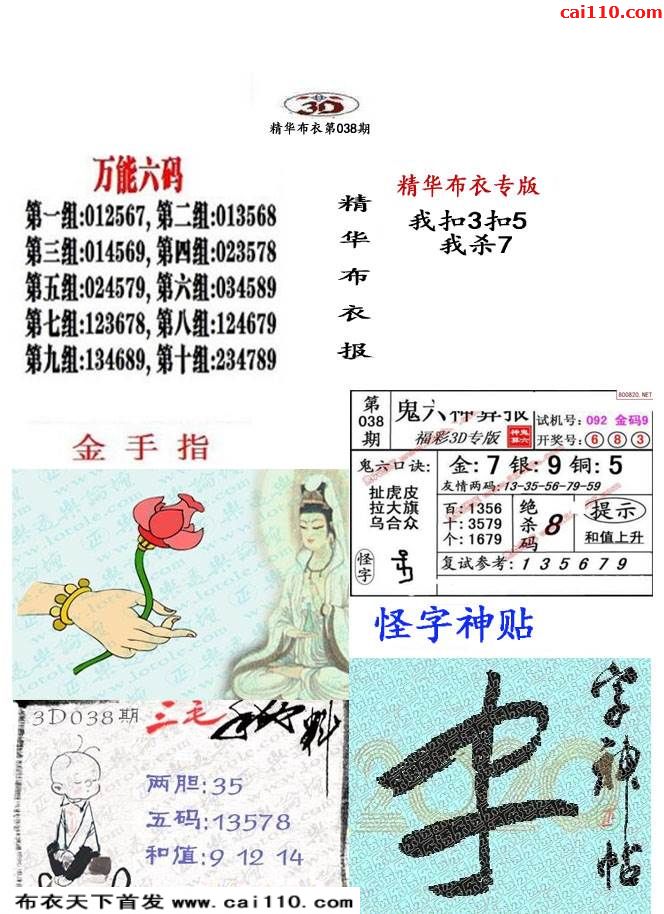 cai110.com
3D
精华布衣第038期
万能六码
第一组:012567, 第二组:013568
第三组:014569, 第四组:023578
第五组:024579, 第六组:034589
第七组:123678, 第八组:124679
第九组:134689, 第十组:234789
精华布衣报
精华布衣专版
我扣3扣5
我杀7
金手指
800820.NET
第038期
鬼六神算报
福彩3D专版
试机号: 092 金码9
开奖号: 6 8 3
鬼六口诀:
扯虎皮
拉大旗
乌合众
怪字
金: 7 银: 9 铜: 5
友情两码: 13-35-56-79-59
百: 1356
十: 3579
个: 1679
绝杀码 8
提示
和值上升
复试参考: 1 3 5 6 7 9
怪字神贴
字神帖
2020
3D038期
三毛
两胆:35
五码:13578
和值:9 12 14
布衣天下首发 www.cai110.com